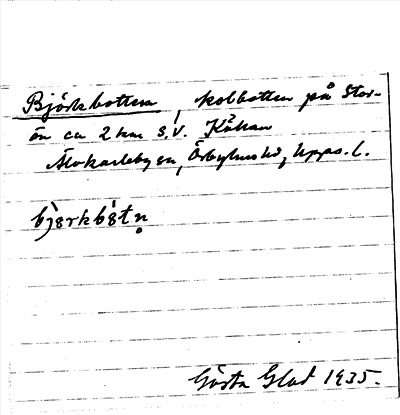 Björkbotten, kolbotten på Stor-
ön ca 2 km S.V. Kåkan
Älvkarleby sn, Örbyhus hd, Upps. l.
bjørkbøtn̥
Gösta Glad 1935.